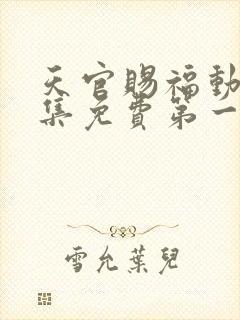 天官賜福動
集免費第一
雪允葉兒